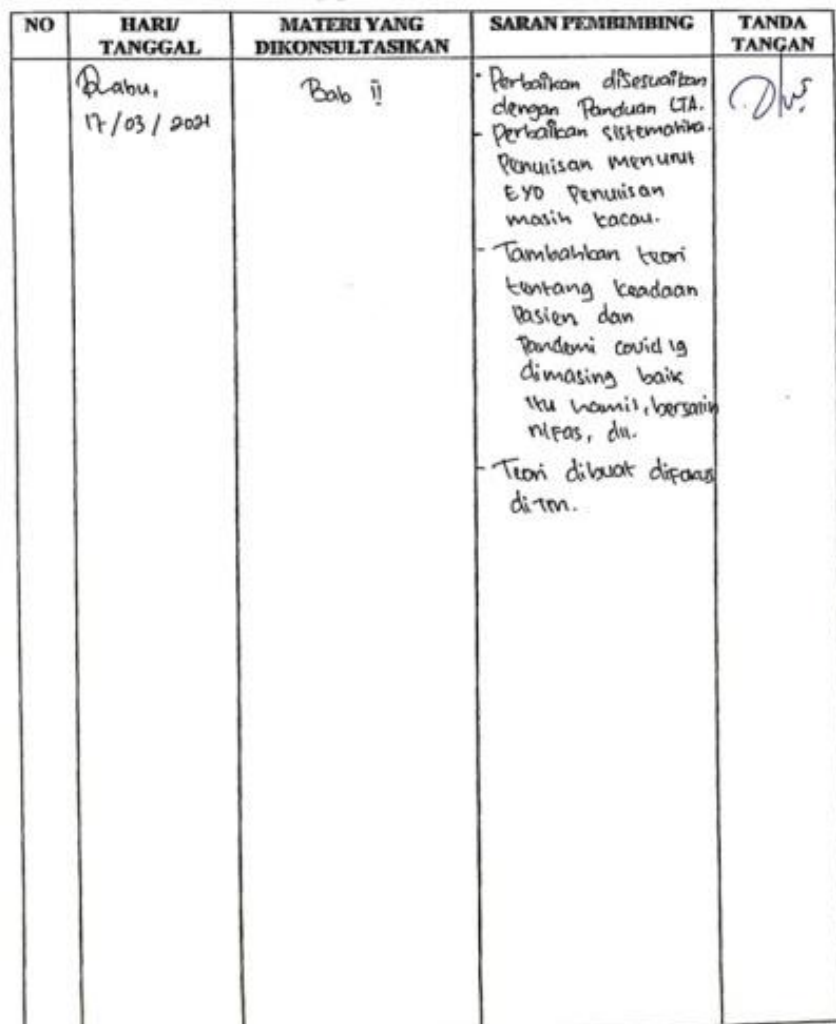 NO HARI/ TANGGAL MATERI YANG DIKONSULTASIKAN SARAN PEMBIMBING TANDA TANGAN
Rabu,
17/03/2021
Bab II
- Perbaikan disesuaikan
dengan Panduan LTA.
- Perbaikan sistematika.
Penulisan menurut
EYD Penulisan
masih kacau.
- Tambahkan teori
tentang keadaan
Pasien dan
Pandemi covid 19
dimasing baik
itu hamil, bersalin
nifas, dll.
- Teori dibuat difokus